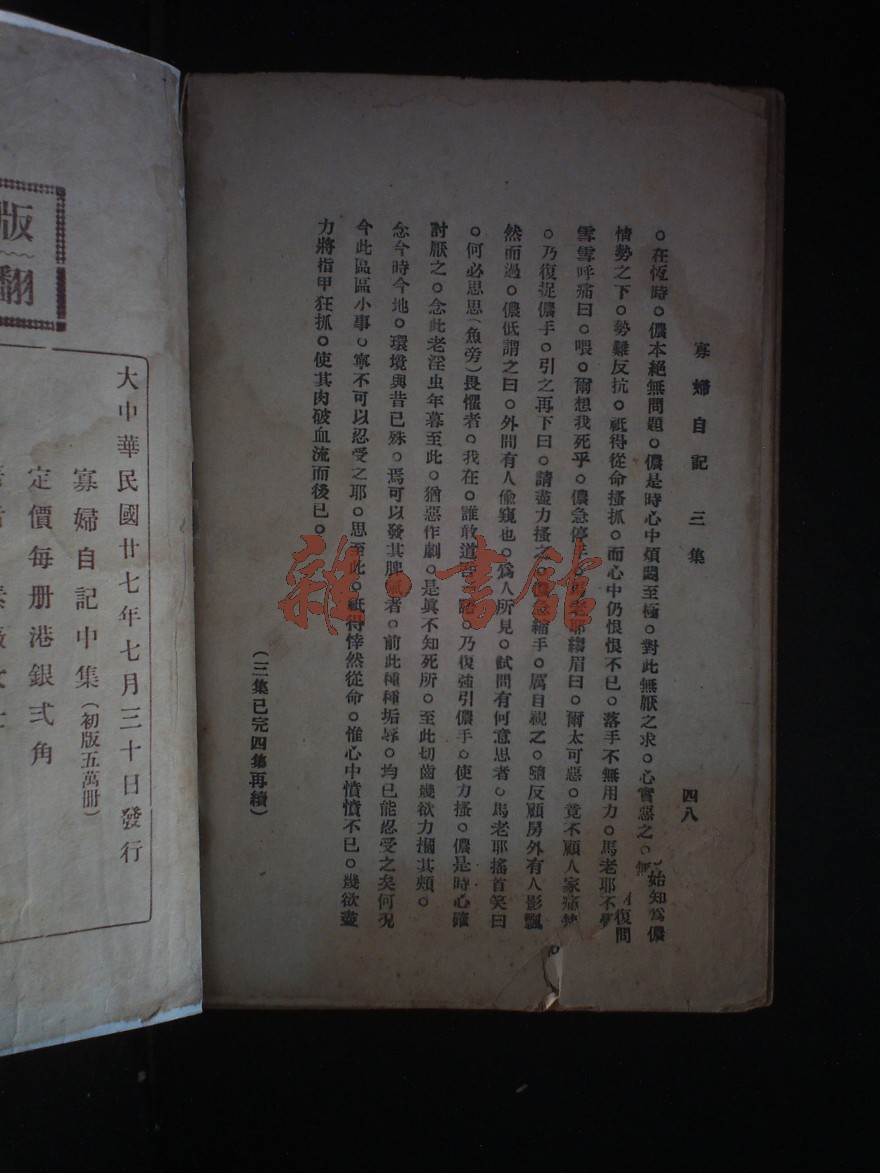 寡婦自記 三集
四八
。在恆時。儂本絕無問題。儂是時心中煩悶至極。對此無厭之求。心實惡之。無
始知為儂
情勢之下。勢難反抗。祇得從命搔抓。而心中仍恨恨不已。落手不無用力。馬老耶不
復問
雪雪呼痛曰。喂。爾想我死乎。儂急停手。馬老耶縐眉曰。爾太可惡。竟不顧人家痛
。乃復捉儂手。引之再下曰。請盡力搔之。儂急縮手。厲目視之。隨反顧房外有人影飄
然而過。儂低謂之曰。外間有人偷窺也。為人所見。試問有何意思者。馬老耶搖首笑曰
。何必思思(魚旁)畏懼者。我在。誰敢道。乃復強引儂手。使力搔。儂是時心確
討厭之。念此老淫虫年暮至此。猶惡作劇。是眞不知死所。至此切齒幾欲力摑其頰。
念今時今地。環境與昔已殊。焉可以發其脾氣者。前此種種垢辱。均已能忍受之矣何況
今此區區小事。寧不可以忍受之耶。思至此。祇得悻然從命。惟心中憤憤不已。幾欲盡
力將指甲狂抓。使其肉破血流而後已。
(三集已完四集再續)
版
翻
大中華民國廿七年七月三十日發行
寡婦自記中集(初版五萬冊)
定價每册港銀弍角
雜·書館